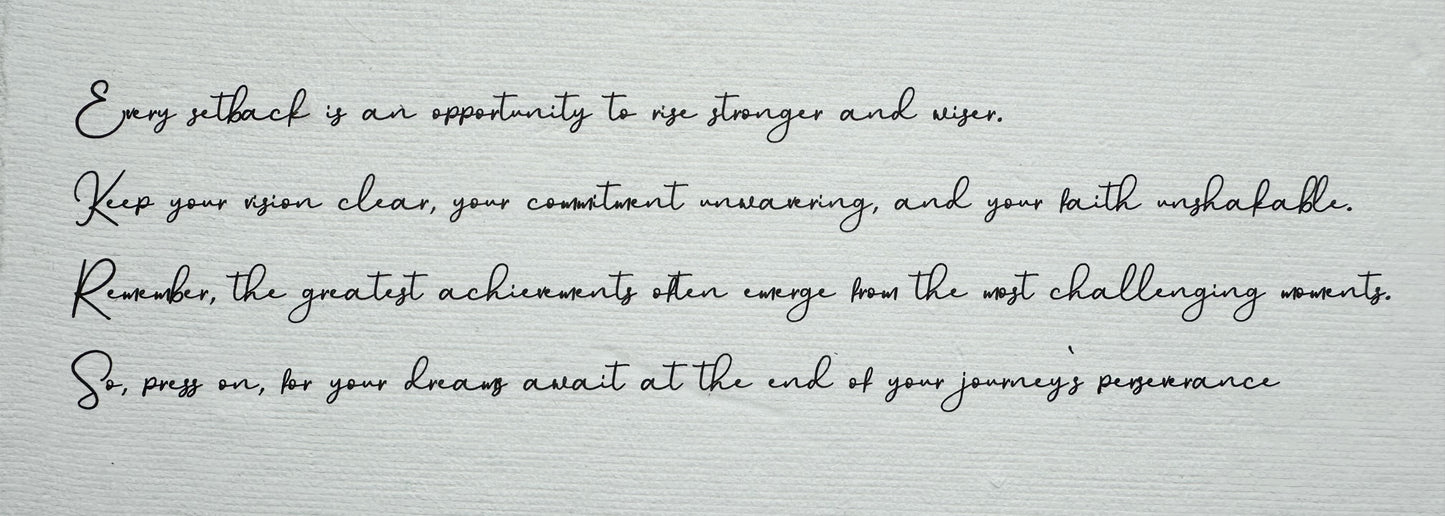 Every setback is an opportunity to rise stronger and wiser.
Keep your vision clear, your commitment unwavering, and your faith unshakable.
Remember, the greatest achievements often emerge from the most challenging moments.
So, press on, for your dreams await at the end of your journey's perseverance